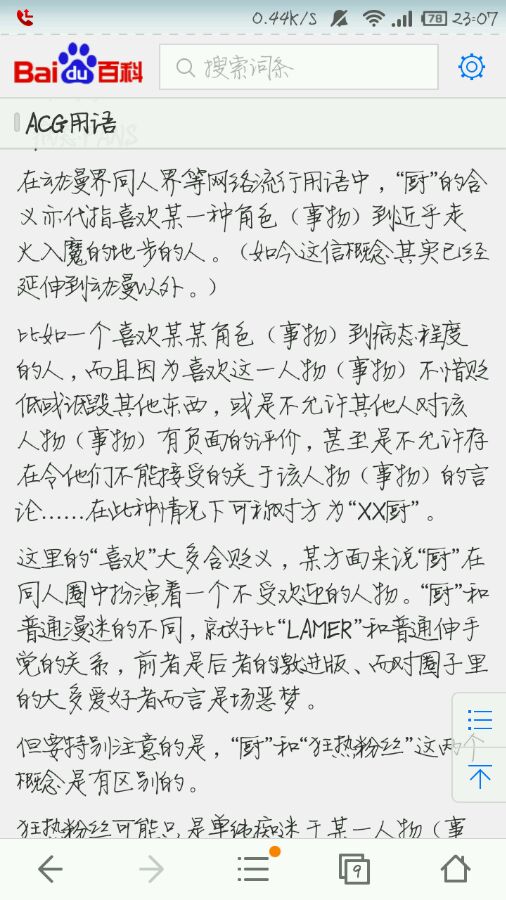 0.44K/S 78 23:07
Bai du 百科
搜索词条
ACG用语
在动漫界同人界等网络流行用语中，“厨”的含
义亦代指喜欢某一种角色（事物）到近乎走
火入魔的地步的人。（如今这信概念其实已经
延伸到动漫以外。）
比如一个喜欢某某角色（事物）到病态程度
的人，而且因为喜欢这一人物（事物）不惜贬
低或诋毁其他东西，或是不允许其他人对该
人物（事物）有负面的评价，甚至是不允许存
在令他们不能接受的关于该人物（事物）的言
论……在此种情况下可称对方为“XX厨”。
这里的“喜欢”大多含贬义，某方面来说“厨”在
同人圈中扮演着一个不受欢迎的人物。“厨”和
普通漫迷的不同，就好比“LAMER”和普通伸手
党的关系，前者是后者的激进版、而对圈子里
的大多爱好者而言是场恶梦。
但要特别注意的是，“厨”和“狂热粉丝”这两个
概念是有区别的。
狂热粉丝可能只是单纯痴迷于某一人物（事
9